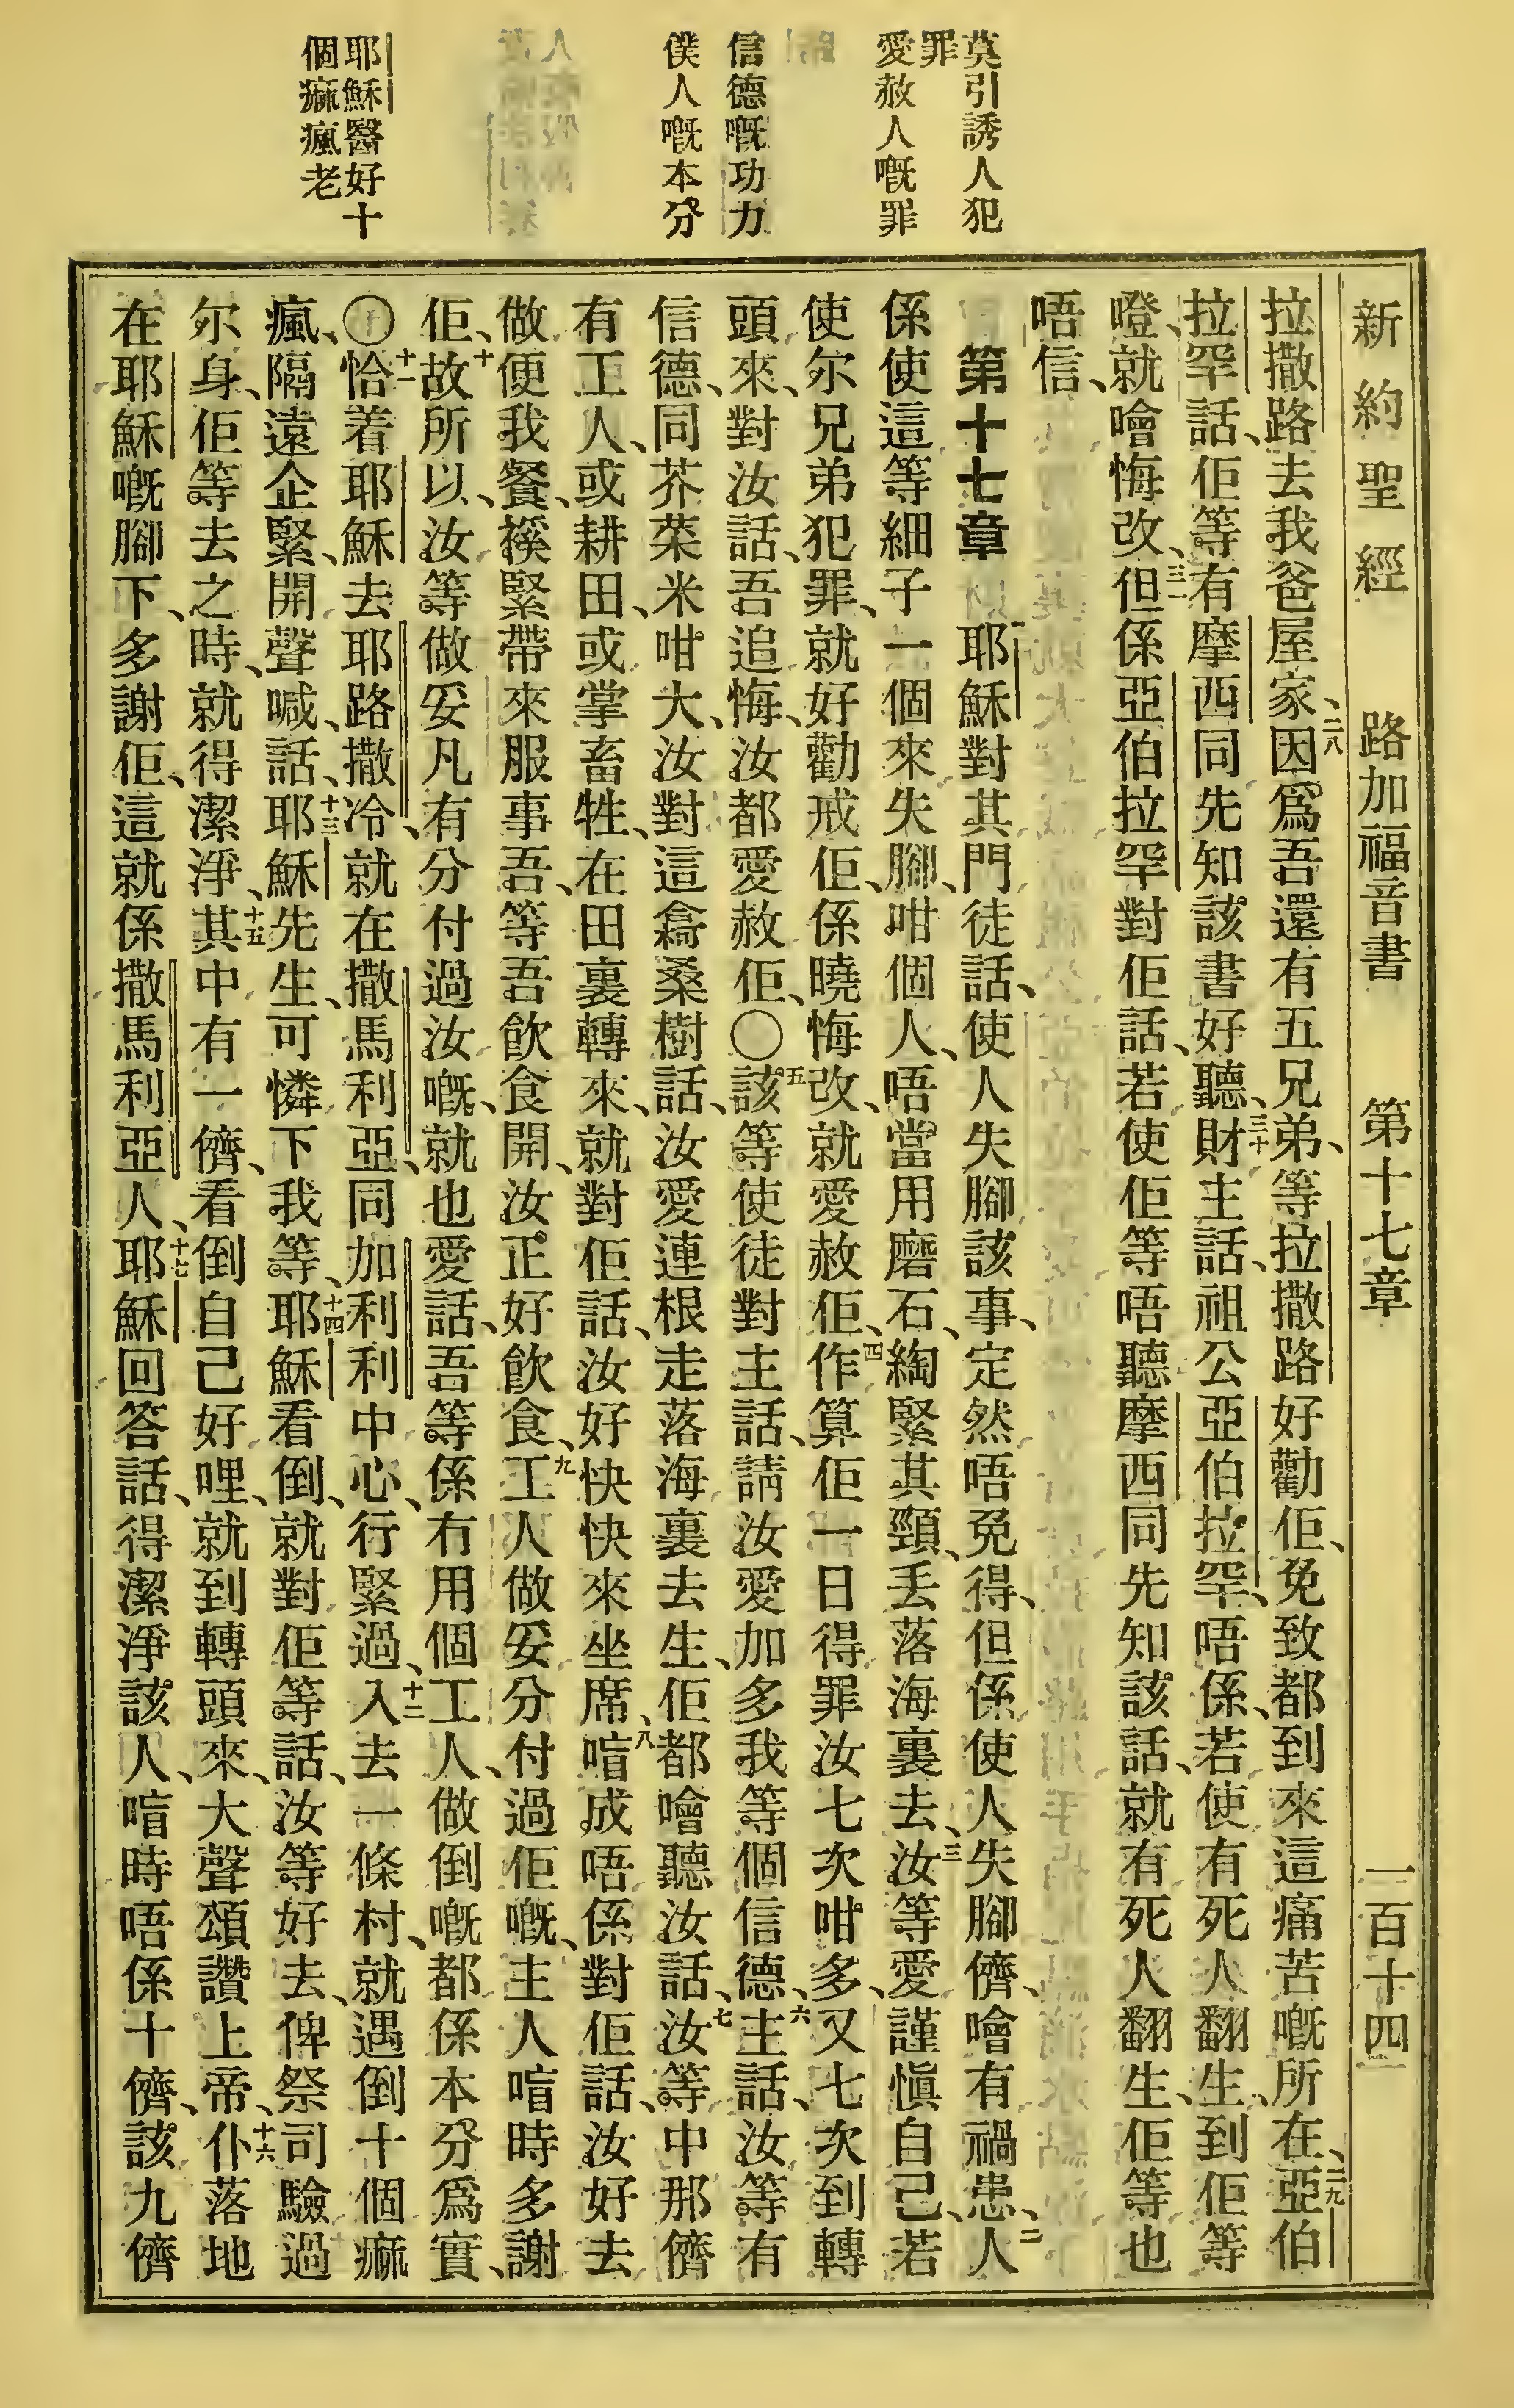 莫引誘人犯
罪
愛赦人嘅罪
信德嘅功力
僕人嘅本分
耶穌醫好十
個痲瘋老
新約聖經 路加福音書 第十七章 一百十四
拉撒路去我爸屋家、二八因爲吾還有五兄弟、等拉撒路好勸佢、免致都到來這痛苦嘅所在、二九亞伯
拉罕話、佢等有摩西同先知該書好聽、三十財主話、祖公亞伯拉罕、唔係、若使有死人翻生、到佢等
噔、就噲悔改、三一但係亞伯拉罕對佢話、若使佢等唔聽摩西同先知該話、就有死人翻生、佢等也
唔信、
第十七章 一耶穌對其門徒話、使人失腳該事、定然唔免得、但係使人失腳儕、噲有禍患、二人
係使這等細子一個來失腳、咁個人、唔當用磨石、綯緊其頸、丢落海裏去、三汝等愛謹愼自己、若
使尔兄弟犯罪、就好勸戒佢、係曉悔改、就愛赦佢、四作算佢一日得罪汝七次咁多、又七次到轉
頭來、對汝話、吾追悔、汝都愛赦佢、〇五該等使徒對主話、請汝愛加多我等個信德、六主話、汝等有
信德、同芥菜米咁大、汝對這裔桑樹話、汝愛連根走落海裏去生、佢都噲聽汝話、七汝等中那儕
有工人、或耕田、或掌畜牲、在田裏轉來、就對佢話、汝好快快來坐席、八喧成唔係對佢話、汝好去
做便我餐、𧜵緊帶來服事吾、等吾飮食開、汝正好飮食、九工人做妥分付過佢嘅、主人喧時多謝
佢、十故所以、汝等做妥凡有分付過汝嘅、就也愛話、吾等係冇用個工人、做倒嘅都係本分爲實、
〇十一恰着耶穌去耶路撒冷、就在撒馬利亞、同加利利中心、行緊過、十二入去一條村、就遇倒十個痲
瘋、隔遠企緊、開聲喊、話、十三耶穌先生、可憐下我等、十四耶穌看倒、就對佢等話、汝等好去、俾祭司驗過
尔身、佢等去之時、就得潔淨、十五其中有一儕、看倒自己好哩、就到轉頭來、大聲頌讚上帝、十六仆落地
在耶穌嘅腳下、多謝佢、這就係撒馬利亞人、十七耶穌回答話、得潔淨該人、喧時唔係十儕、該九儕